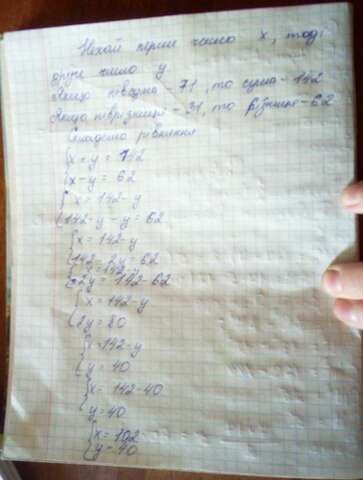 Нехай перше число x, тоді
друге число y
Якщо півсума - 71, то сума - 142
Якщо піврізниця - 31, то різниця - 62
Складемо рівняння
{x + y = 142
x - y = 62
{x = 142 - y
142 - y - y = 62
{x = 142 - y
142 - 2y = 62
{x = 142 - y
2y = 142 - 62
{x = 142 - y
2y = 80
{x = 142 - y
y = 40
{x = 142 - 40
y = 40
{x = 102
y = 40